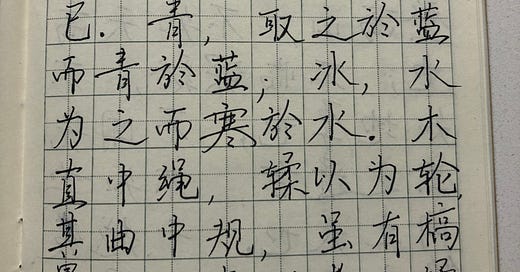 已.青,取之於蓝
而青於蓝;冰,水
为之而寒於水.木
直中绳,𫐓以为轮,
其曲中规,虽有槁